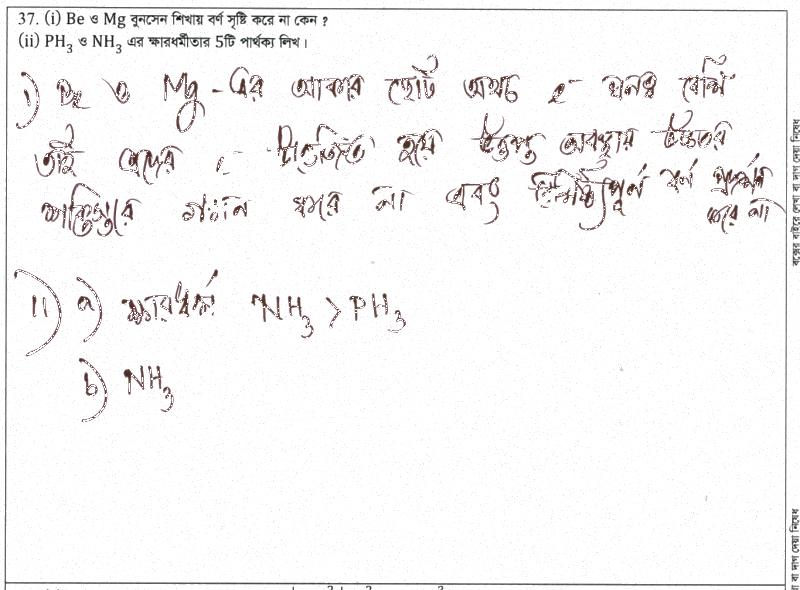 37. (i) Be ও Mg বুনসেন শিখায় বর্ণ সৃষ্টি করে না কেন ?
(ii) PH₃ ও NH₃ এর ক্ষারধর্মীতার 5টি পার্থক্য লিখ।
i) Be ও Mg-এর আকার ছোট অথচ e⁻ ঘনত্ব বেশি
তাই এদের e⁻ উত্তেজিত হয়ে উত্তপ্ত অবস্থায় উচ্চতর
শক্তিস্তরে গমন করে না এবং বর্ণ প্রদর্শন
করে না
ii) a) ক্ষারধর্ম NH₃ > PH₃
b) NH₃
বক্সের বাইরে লেখা বা দাগ দেয়া নিষেধ
বা দাগ দেয়া নিষেধ